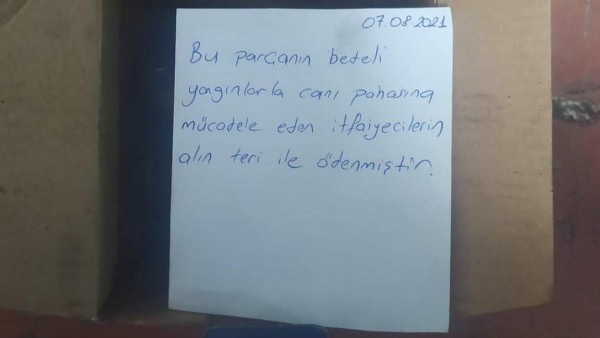 07.08.2021
Bu parçanın bedeli
yangınlarla canı pahasına
mücadele eden itfaiyecilerin
alın teri ile ödenmiştir.